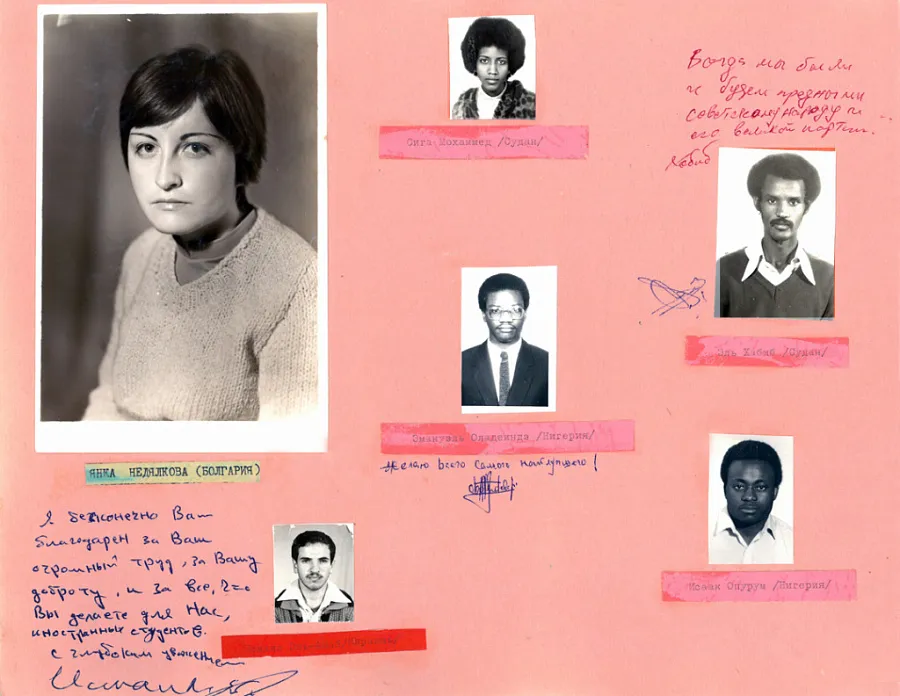 Сига Мохаммед /Судан/
Всегда мы были
и будем преданными
советскому народу и
его великой партии.
Хабиб
Эль Хабиб /Судан/
Эмануэль Оладеинда /Нигерия/
Желаю всего самого наилучшего!
ЯНКА НЕДЯЛКОВА (БОЛГАРИЯ)
Исаак Опурум /Нигерия/
Я бесконечно Вам
благодарен за Ваш
огромный труд, за Вашу
доброту, и за все, что
Вы делаете для нас,
иностранных студентов.
с глубоким уважением